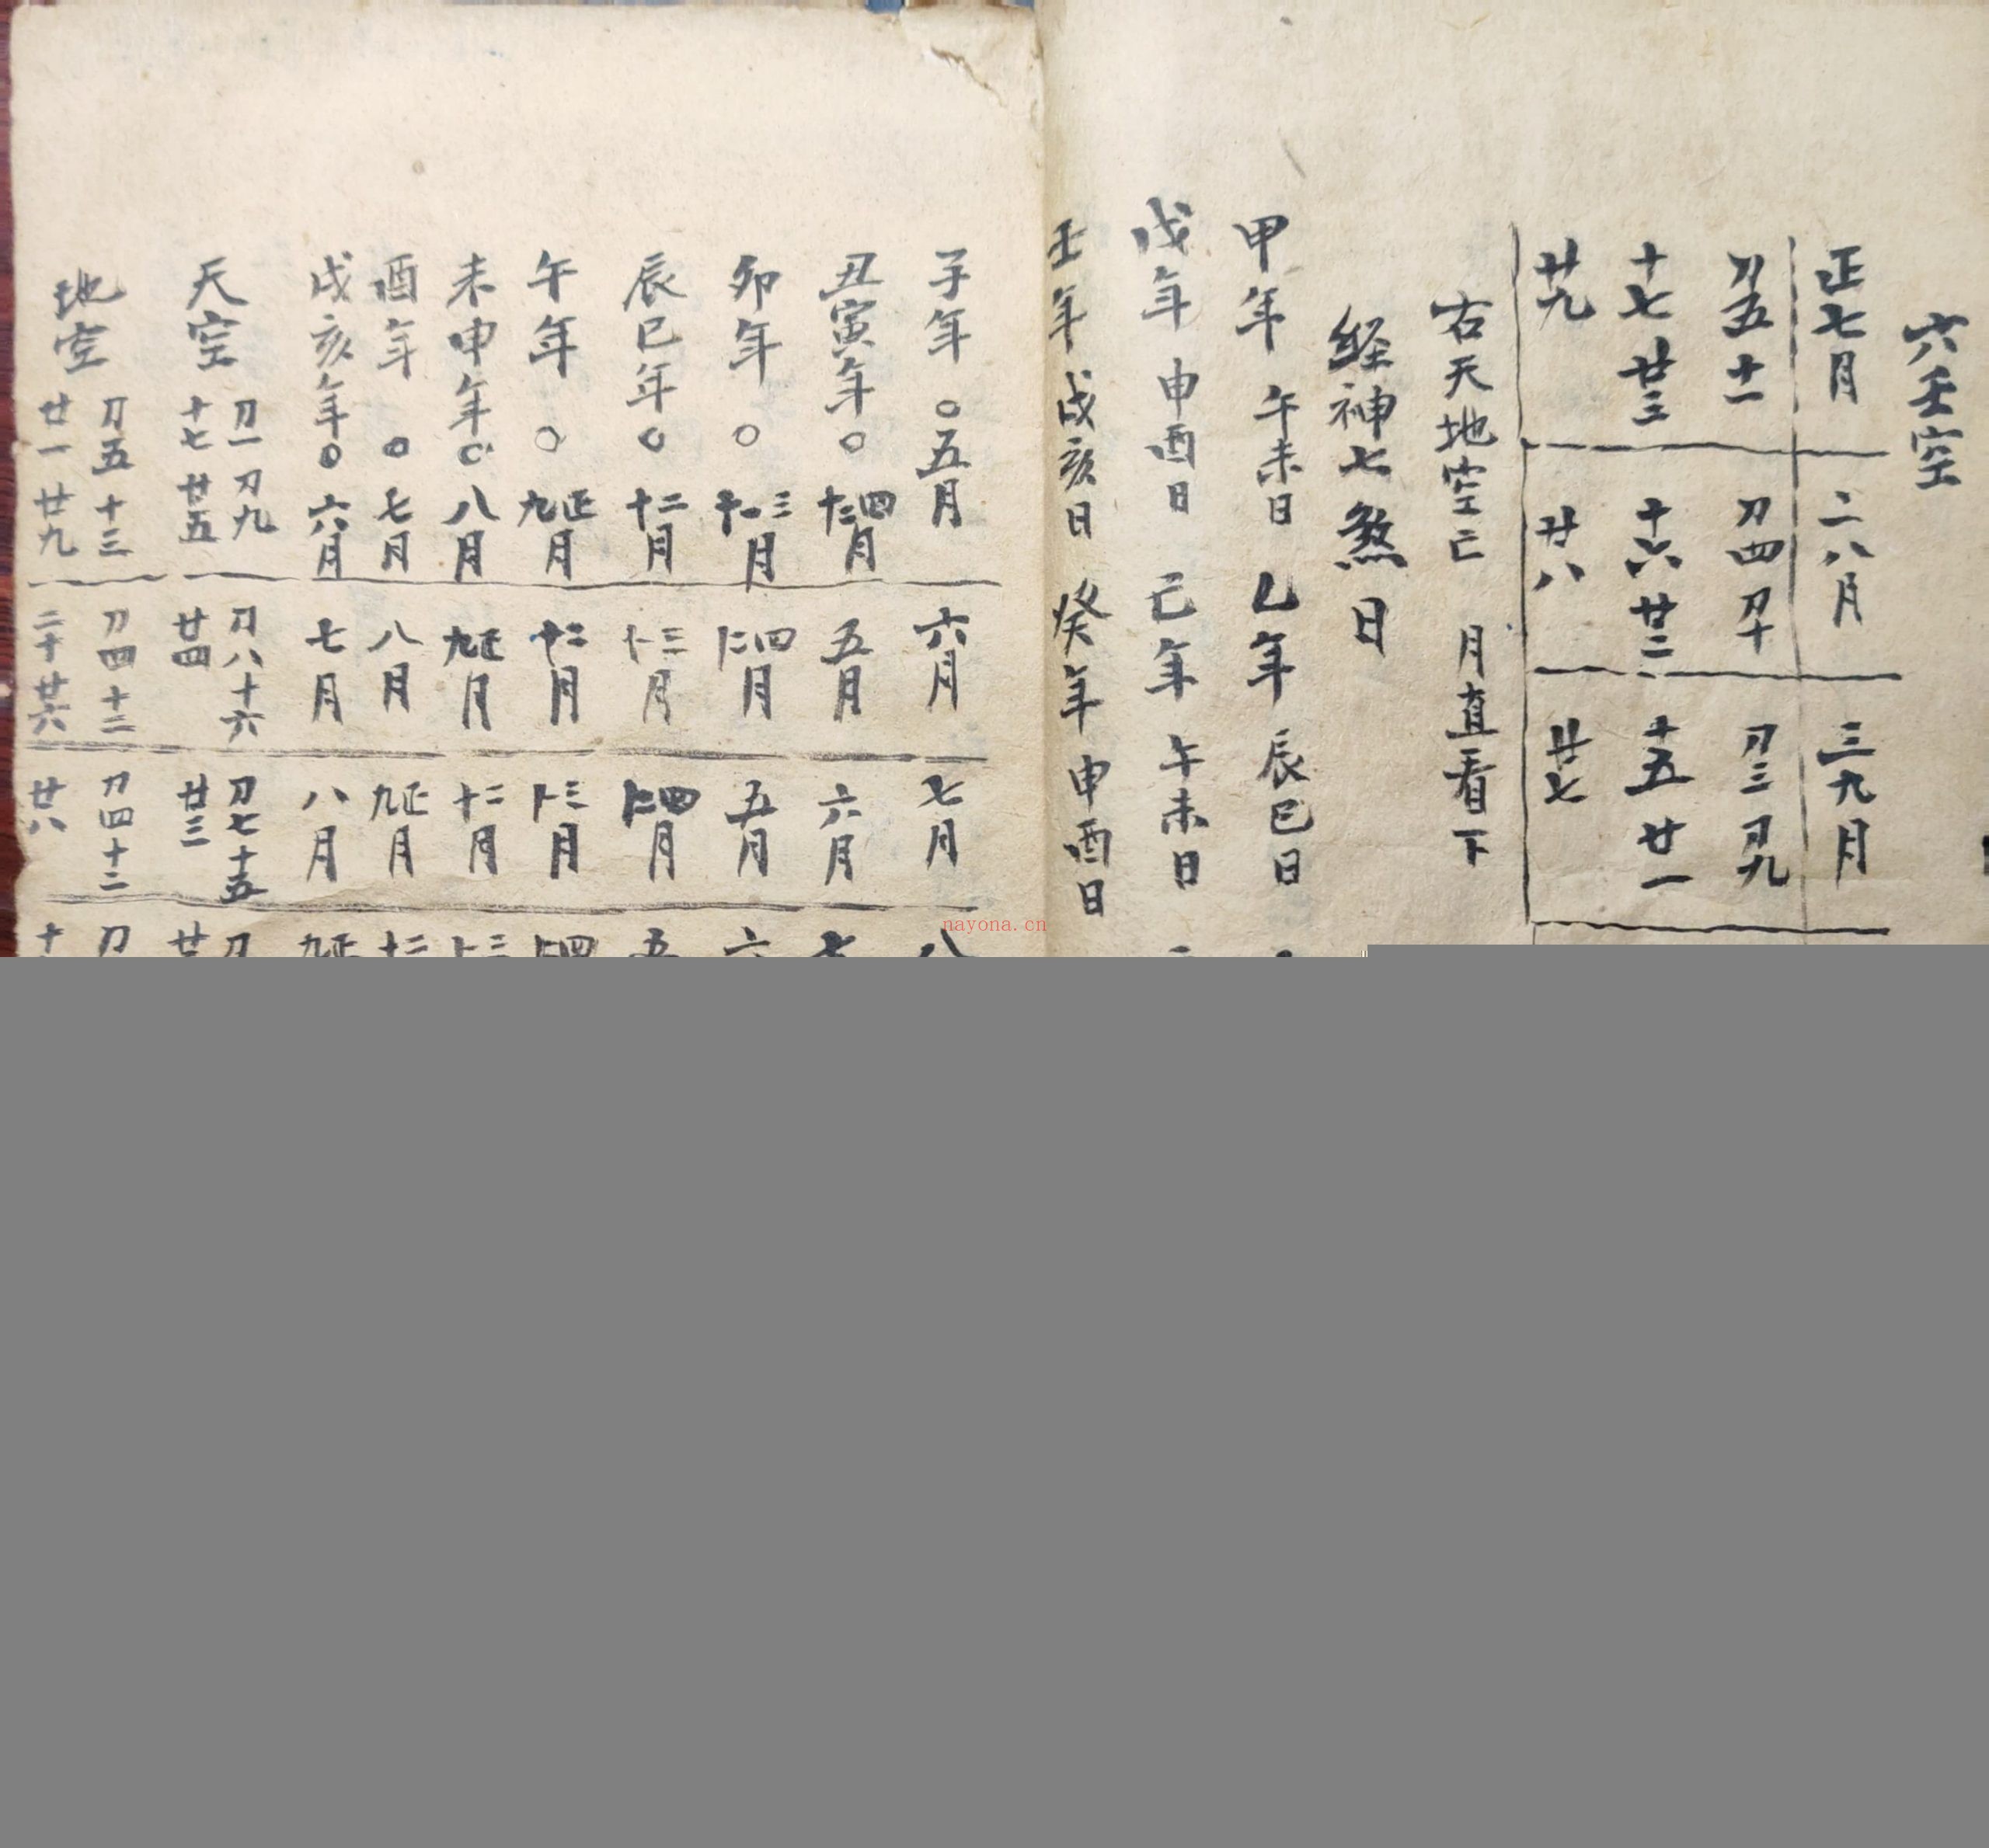 六壬空
正七月 二八月 三九月
刀五 十一 刀四 刀十 刀三 刀九
十七 廿三 十六 廿二 十五 廿一
廿九 廿八 廿七
右天地空亡 月直看下
經神七煞日
甲年 午未日 乙年 辰巳日
戊年 申酉日 己年 午未日
壬年 戌亥日 癸年 申酉日
子年○五月 六月 七月 八
丑寅年○ 四十二月 五月 六月 七
卯年○ 三十一月 四十二月 五月 六
辰巳年○ 二十月 三十一月 四十二月 五
午年○ 正九月 二十月 三十一月 四十二
未申年○ 八月 正九月 二十月 三十一
酉年○ 七月 八月 正九月 二十
戌亥年○ 六月 七月 八月 正九
天空 刀一 刀九 刀八 十六 刀七 十五 刀
十七 廿五 廿四 廿三 廿
地空 刀五 十三 刀四 十二 刀四 十二 刀
廿一 廿九 二十 廿八 十
nayona.cn